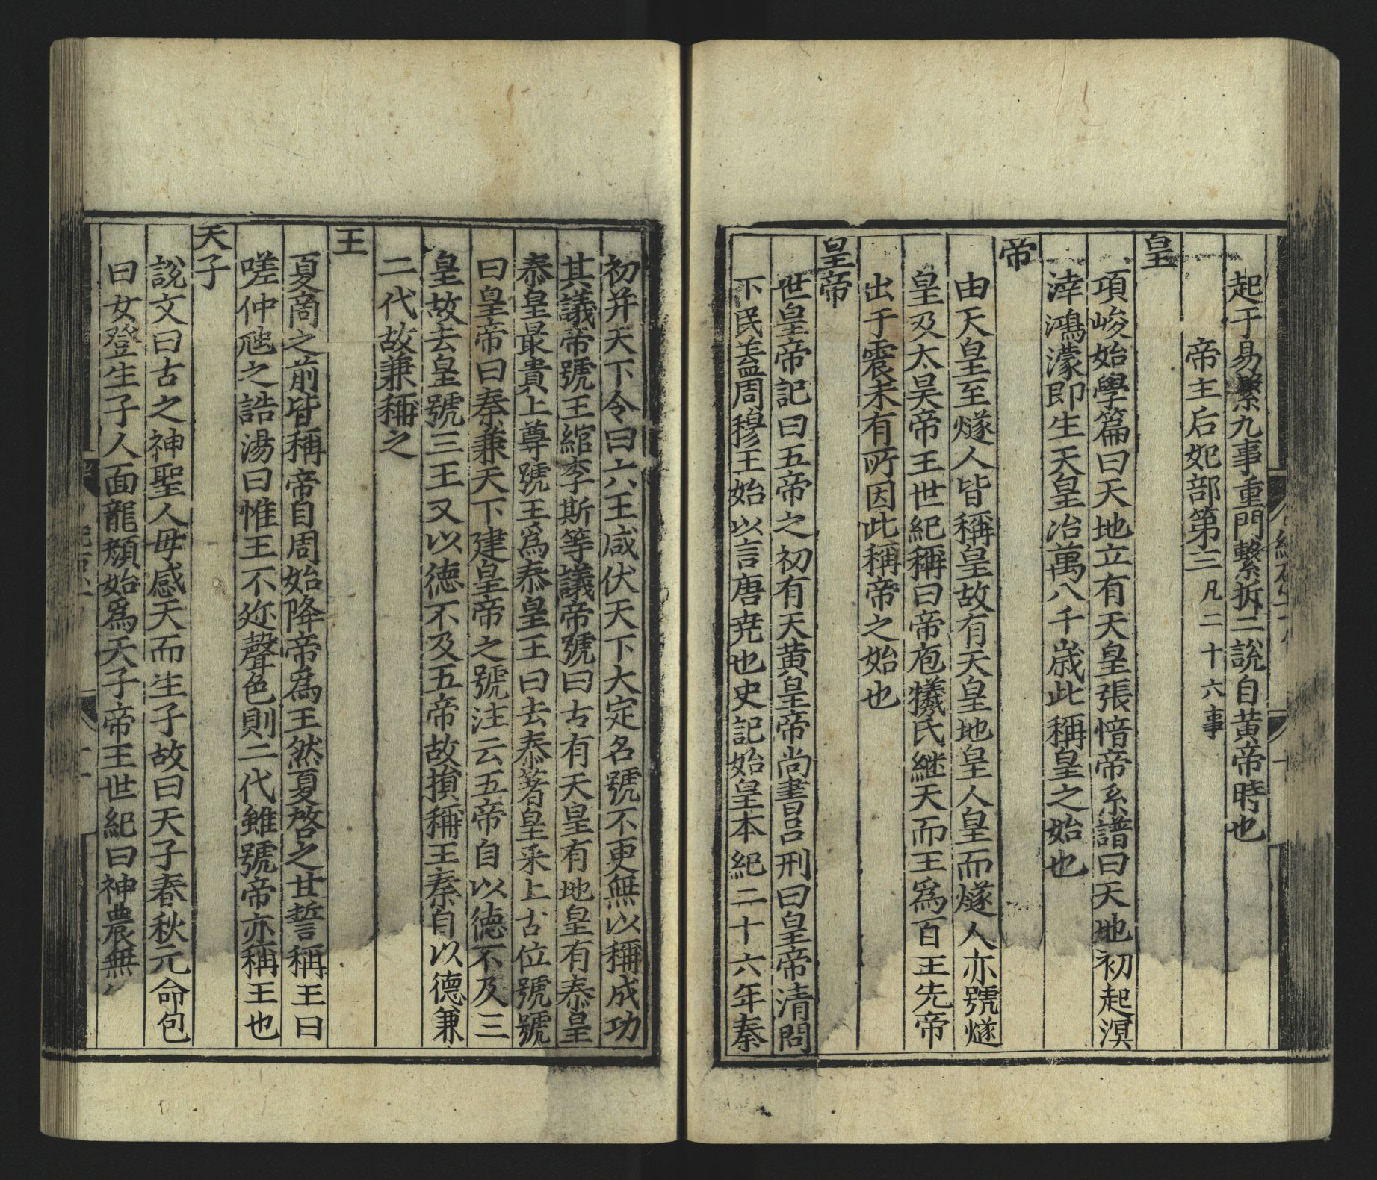 起于易繫九事重門擊拆二說自黃帝時也
帝主后妃部第三凡二十六事
皇
項峻始學篇曰天地立有天皇張愔帝系譜曰天地初起溟
涬鴻濛即生天皇治萬八千歲此稱皇之始也
帝
由天皇至燧人皆稱皇故有天皇地皇人皇而燧人亦號燧
皇及太昊帝王世紀稱曰帝庖犧氏継天而王爲百王先帝
出于震未有所因此稱帝之始也
皇帝
世皇帝記曰五帝之初有天黄皇帝尚書吕刑曰皇帝清問
下民蓋周穆王始以言唐尭也史記始皇本紀二十六年秦
初并天下令曰六王咸伏天下大定名號不更無以稱成功
其議帝號王綰李斯等議帝號曰古有天皇有地皇有泰皇
泰皇最貴上尊號王爲泰皇王曰去泰著皇采上古位號號
曰皇帝曰秦兼天下建皇帝之號注云五帝自以德不及三
皇故去皇號三王又以德不及五帝故損稱王秦自以德兼
二代故兼稱之
王
夏商之前皆稱帝自周始降帝為王然夏啓之甘誓稱王曰
嗟仲虺之誥湯曰惟王不迩聲色則二代雖號帝亦稱王也
天子
說文曰古之神聖人母感天而生子故曰天子春秋元命包
曰女登生子人面龍顏始爲天子帝王世紀曰神農無